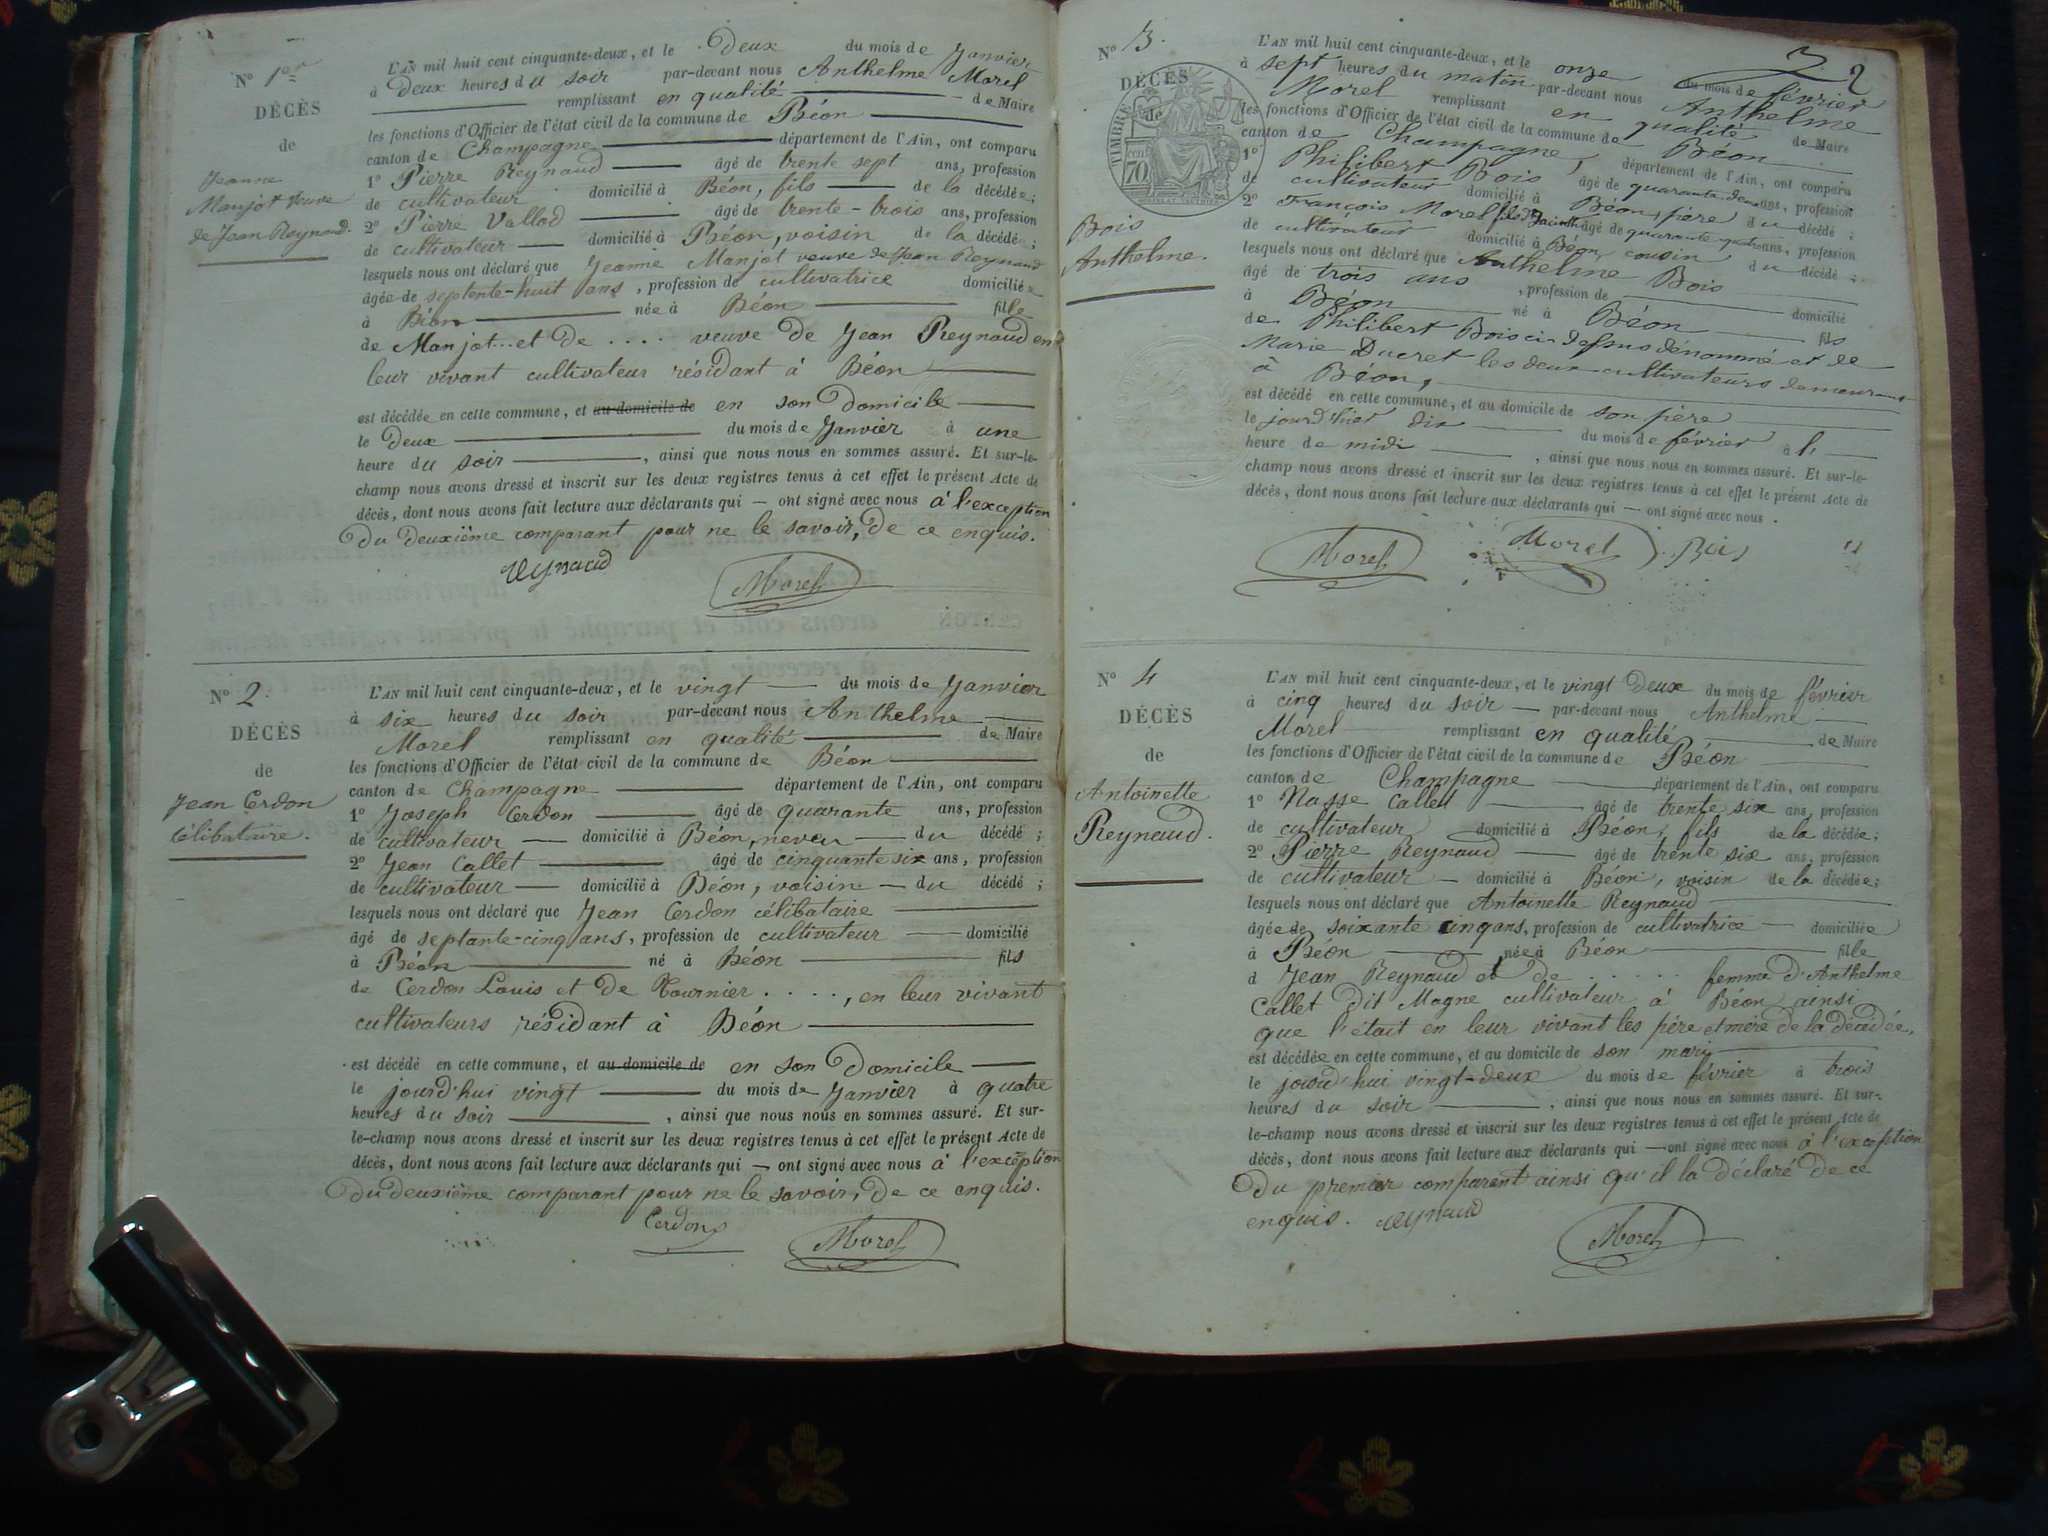 N° 1er
DÉCÈS
de
Jeanne
Manjot veuve
de Jean Reynaud.
L'AN mil huit cent cinquante-deux, et le Deux du mois de Janvier
à Deux heures du soir par-devant nous Anthelme Morel
remplissant en qualité de Maire
les fonctions d'Officier de l'état civil de la commune de Béon
canton de Champagne département de l'Ain, ont comparu
1° Pierre Reynaud âgé de trente sept ans, profession
de cultivateur domicilié à Béon, fils de la décédée;
2° Pierre Vallod âgé de trente-trois ans, profession
de cultivateur domicilié à Béon, voisin de la décédée;
lesquels nous ont déclaré que Jeanne Manjot veuve de Jean Reynaud
âgée de septente-huit ans, profession de cultivatrice domiciliée
à Béon née à Béon fille
de Manjot... et de .... veuve de Jean Reynaud en
leur vivant cultivateur résidant à Béon
est décédée en cette commune, et au domicile de en son Domicile
le Deux du mois de Janvier à une
heure du soir, ainsi que nous nous en sommes assuré. Et sur-le-
champ nous avons dressé et inscrit sur les deux registres tenus à cet effet le présent Acte de
décès, dont nous avons fait lecture aux déclarants qui — ont signé avec nous à l'exception
Du deuxième comparant pour ne le savoir, de ce enquis.
reynaud Morel
N° 2.
DÉCÈS
de
Jean Cerdon
célibataire.
L'AN mil huit cent cinquante-deux, et le vingt du mois de Janvier
à six heures du soir par-devant nous Anthelme
Morel remplissant en qualité de Maire
les fonctions d'Officier de l'état civil de la commune de Béon
canton de Champagne département de l'Ain, ont comparu
1° Joseph Cerdon âgé de quarante ans, profession
de cultivateur domicilié à Béon, neveu du décédé;
2° Jean Callet âgé de cinquante six ans, profession
de cultivateur domicilié à Béon, voisin du décédé;
lesquels nous ont déclaré que Jean Cerdon célibataire
âgé de septante-cinq ans, profession de cultivateur domicilié
à Béon né à Béon fils
de Cerdon Louis et de Tournier ...., en leur vivant
cultivateurs résidant à Béon
est décédé en cette commune, et au domicile de en son Domicile
le jourd'hui vingt du mois de Janvier à quatre
heures du soir, ainsi que nous nous en sommes assuré. Et sur-
le-champ nous avons dressé et inscrit sur les deux registres tenus à cet effet le présent Acte de
décès, dont nous avons fait lecture aux déclarants qui — ont signé avec nous à l'exception
Du deuxième comparant pour ne le savoir, De ce enquis.
Cerdon Morel
N° 3.
DÉCÈS
de
TIMBRE
70
Bois
Anthelme.
2
L'AN mil huit cent cinquante-deux, et le onze du mois de février
à sept heures du matin par-devant nous Anthelme
Morel remplissant en qualité de Maire
les fonctions d'Officier de l'état civil de la commune de Béon
canton de Champagne, département de l'Ain, ont comparu
1° Philibert Bois âgé de quarante deux ans, profession
de cultivateur domicilié à Béon, père du décédé;
2° François Morel fils Jacinth âgé de quarante quatre ans, profession
de cultivateur domicilié à Béon, cousin du décédé;
lesquels nous ont déclaré que Anthelme Bois
âgé de trois ans, profession de domicilié
à Béon né à Béon fils
de Philibert Bois ci-dessus dénommé et de
Marie Ducret les deux cultivateurs demeurant
à Béon,
est décédé en cette commune, et au domicile de son père
le jourd'hier dix du mois de février à l'
heure de midi, ainsi que nous nous en sommes assuré. Et sur-le-
champ nous avons dressé et inscrit sur les deux registres tenus à cet effet le présent Acte de
décès, dont nous avons fait lecture aux déclarants qui — ont signé avec nous.
Morel Morel Bois
N° 4
DÉCÈS
de
Antoinette
Reynaud.
L'AN mil huit cent cinquante-deux, et le vingt Deux du mois de février
à cinq heures du soir par-devant nous Anthelme
Morel remplissant en qualité de Maire
les fonctions d'Officier de l'état civil de la commune de Béon
canton de Champagne département de l'Ain, ont comparu
1° Nasse Callet âgé de trente six ans, profession
de cultivateur domicilié à Béon, fils de la décédée;
2° Pierre Reynaud âgé de trente six ans, profession
de cultivateur domicilié à Béon, voisin de la décédée;
lesquels nous ont déclaré que Antoinette Reynaud
âgée de soixante cinq ans, profession de cultivatrice domiciliée
à Béon née à Béon fille
d Jean Reynaud et de ..... femme d'Anthelme
Callet dit Magne cultivateur à Béon ainsi
que l'était en leur vivant les père et mère de la décédée,
est décédée en cette commune, et au domicile de son mari
le jourd'hui vingt-deux du mois de février à trois
heures du soir, ainsi que nous nous en sommes assuré. Et sur-
le-champ nous avons dressé et inscrit sur les deux registres tenus à cet effet le présent Acte de
décès, dont nous avons fait lecture aux déclarants qui — ont signé avec nous à l'exception
Du premier comparent ainsi qu'il la déclaré de ce
enquis. reynaud Morel